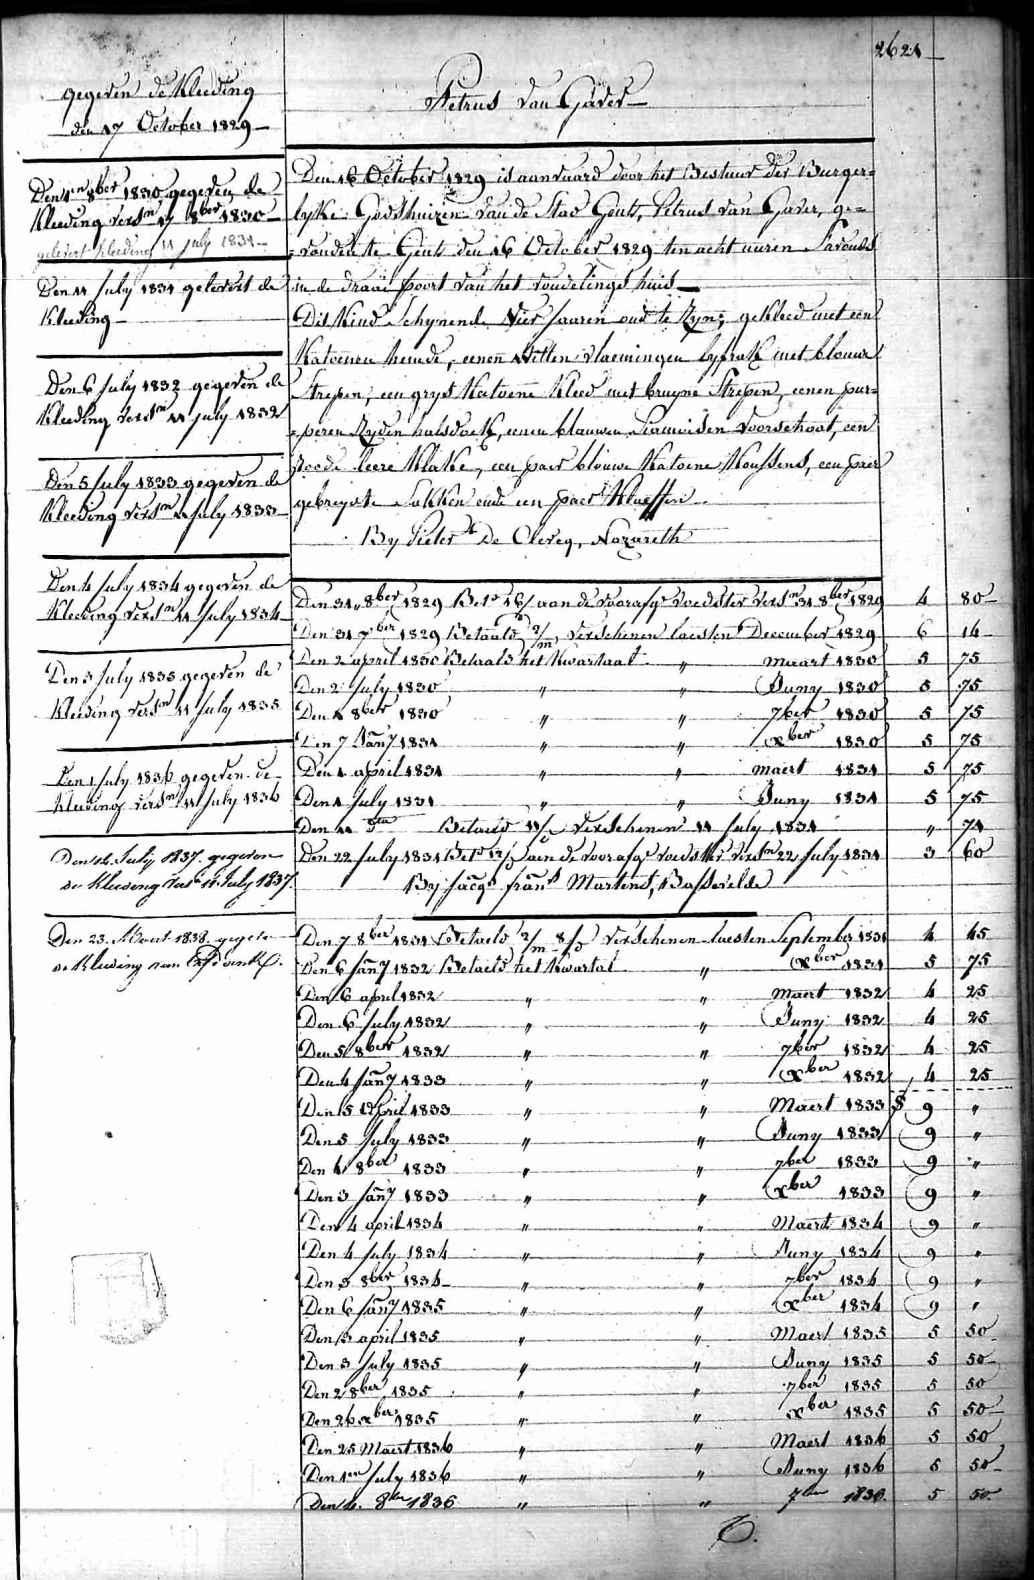 2621
gegeven de Kleeding
den 17 October 1829
Petrus Van Gaver
Den 1en 8ber 1830 gegeven de
Kleeding versn 17 8ber 1830
gelevert kleeding 11 july 1831
Den 11 July 1831 gelevert de
Kleeding
Den 6 July 1832 gegeven de
Kleeding versn 11 july 1832
Den 5 July 1833 gegeven de
Kleeding versn 11 July 1833
Den 4 July 1834 gegeven de
Kleeding versn 11 July 1834
Den 3 July 1835 gegeven de
Kleeding versn 11 July 1835
Den 1 July 1836 gegeven de
Kleeding versn 11 July 1836
Den 14 July 1837 gegeven
de Kleeding versn 11 July 1837
Den 23 Maert 1838 gegeven
de Kleeding van
Den 16 October 1829 is aanvaard door het Bestuur der Burger=
lyke Godshuizen van de Stad Gent, Petrus van Gaver, ge=
=vonden te Gent den 16 October 1829 ten acht uuren s'avonds
in de draai poort van het vondelings huis
Dit Kind Schynende Vier Jaaren oud te Zyn, gekleed met een
Katoenen hemde, eenen Witten vlaemingen lyfrok met blouwe
Strepen, een grys Katoene Kleed met bruyne Strepen, eenen pur=
=peren Zyden halsdoek, eenen blauwen Siamoisen Voorschoot, een
roode leere Klakke, een paer blouwe Katoene Koussens, een paer
gebreyde Sokken ende een paer Kloeffen
By Pieter De Clercq, Nazareth
Den 31 8ber 1829 Betd 16/ aan de voorafge voedster versn 31 8ber 1829 4 80
Den 31 xber 1829 Betaald 2/m Verschenen laesten December 1829 6 14
Den 2 april 1830 Betaald het Kwartaal " maart 1830 5 75
Den 2 July 1830 " " Juny 1830 5 75
Den 1 8ber 1830 " " 7ber 1830 5 75
Den 7 Jany 1831 " " xber 1830 5 75
Den 1 april 1831 " " maert 1831 5 75
Den 1 July 1831 " " Juny 1831 5 75
Den 11 dto Betaeld 11/ Verschenen 11 July 1831 " 71
Den 22 July 1831 Betd 12/ aen de voorafge voedster versn 22 July 1831 3 60
By Jacqs frans Martens, Bassevelde
Den 7 8ber 1831 Betaeld 2/m 8/ Verschenen laesten September 1831 4 45
Den 6 Jany 1832 Betaeld het Kwartal " xber 1831 5 75
Den 6 april 1832 " " maert 1832 4 25
Den 6 July 1832 " " Juny 1832 4 25
Den 5 8ber 1832 " " 7ber 1832 4 25
Den 4 Jany 1833 " " xber 1832 4 25
Den 5 April 1833 " " Maert 1833 9 "
Den 5 July 1833 " " Juny 1833 9 "
Den 4 8ber 1833 " " 7ber 1833 9 "
Den 3 Jany 1833 " " xber 1833 9 "
Den 4 april 1834 " " Maert 1834 9 "
Den 4 July 1834 " " Juny 1834 9 "
Den 3 8ber 1834 " " 7ber 1834 9 "
Den 6 Jany 1835 " " xber 1834 9 "
Den 13 april 1835 " " Maert 1835 5 50
Den 3 July 1835 " " Juny 1835 5 50
Den 2 8ber 1835 " " 7ber 1835 5 50
Den 26 xber 1835 " " xber 1835 5 50
Den 25 Maert 1836 " " Maert 1836 5 50
Den 1en July 1836 " " Juny 1836 5 50
Den 4 8ber 1836 " " 7ber 1836 5 50